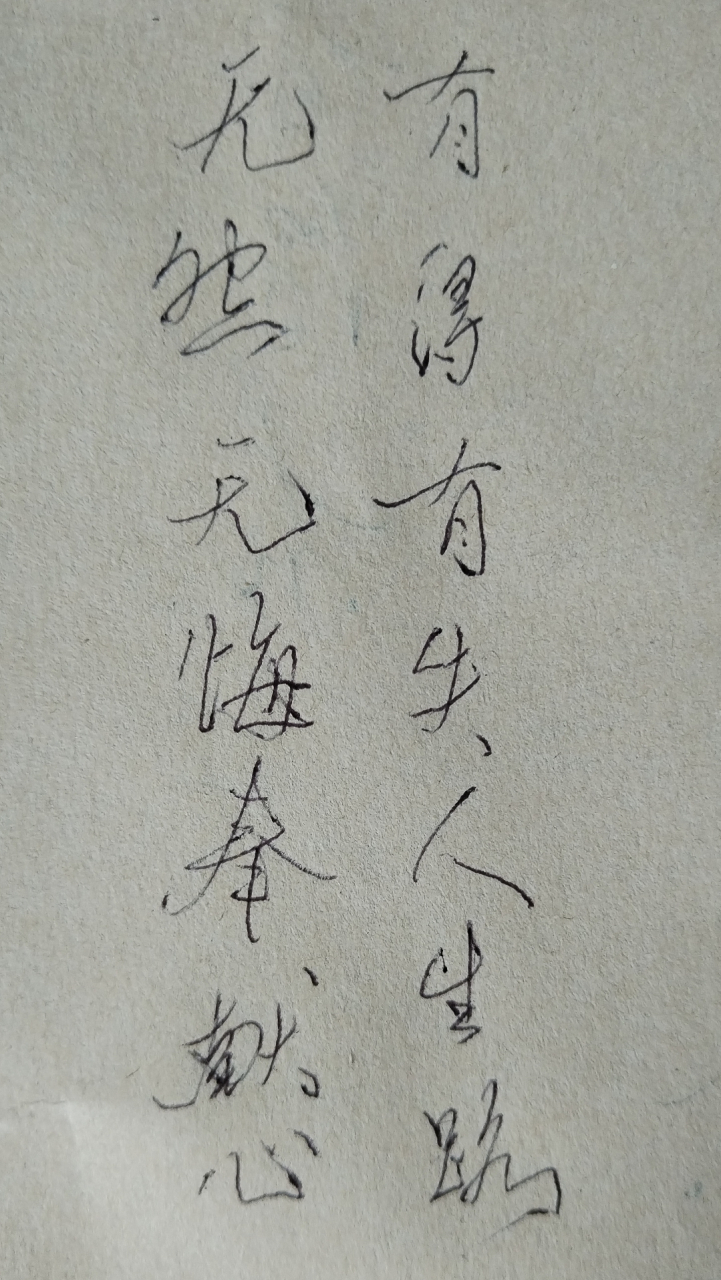 有得有失人生路
无怨无悔奉献心